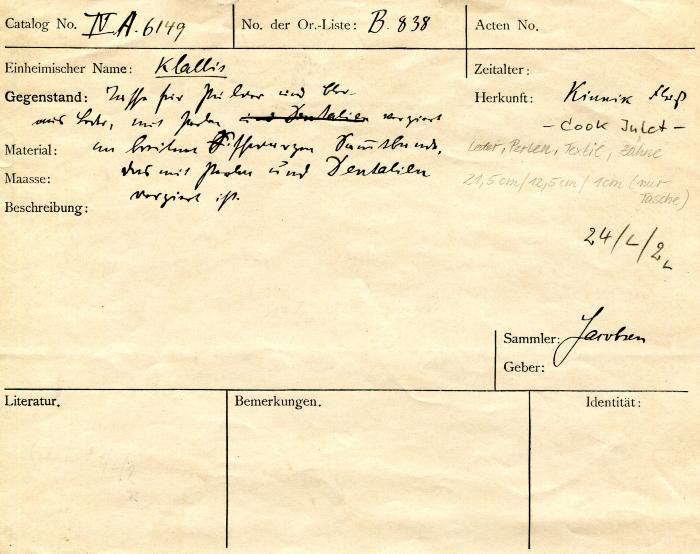 Catalog No. IV A. 6149
No. der Or.-Liste: B. 838
Acten No.
Einheimischer Name: Klallis
Zeitalter:
Gegenstand: Tasche für Pulver und
Herkunft: Kinnik Fluß
aus Leder, mit Perlen und Dentalien verziert
- Cook Inlet -
Material: an breitem schwarzen Sammtbande,
Leder, Perlen, Textil, Zähne
Maasse: das mit Perlen und Dentalien
21,5cm/12,5cm/1cm (nur Tasche)
Beschreibung: verziert ist.
24/L/2L
Sammler: Jacobsen
Geber:
Literatur.
Bemerkungen.
Identität: